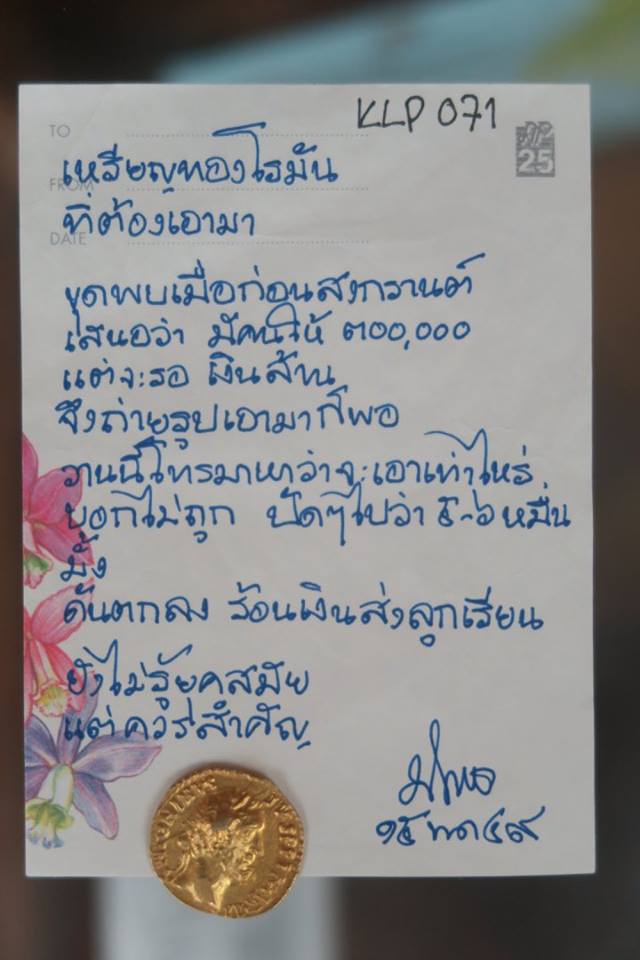 KLP 071
TO
25
เหรียญทองโรมัน
FROM
ที่ต้องเอามา
DATE
ขุดพบเมื่อก่อนสงกรานต์
เสนอว่า มีคนให้ ๓๐๐,๐๐๐
แต่จะรอ เงินล้าน
จึงถ่ายรูปเอามาก็พอ
วานนี้โทรมาหาว่าจะเอาเท่าไหร่
บอกไม่ถูก ปัดๆไปว่า ๕-๖ หมื่น
มั้ง
ดันตกลง ร้อนเงินส่งลูกเรียน
ยังไม่รู้ยุคสมัย
แต่ควรสำคัญ
๑๕ พค ๔๙